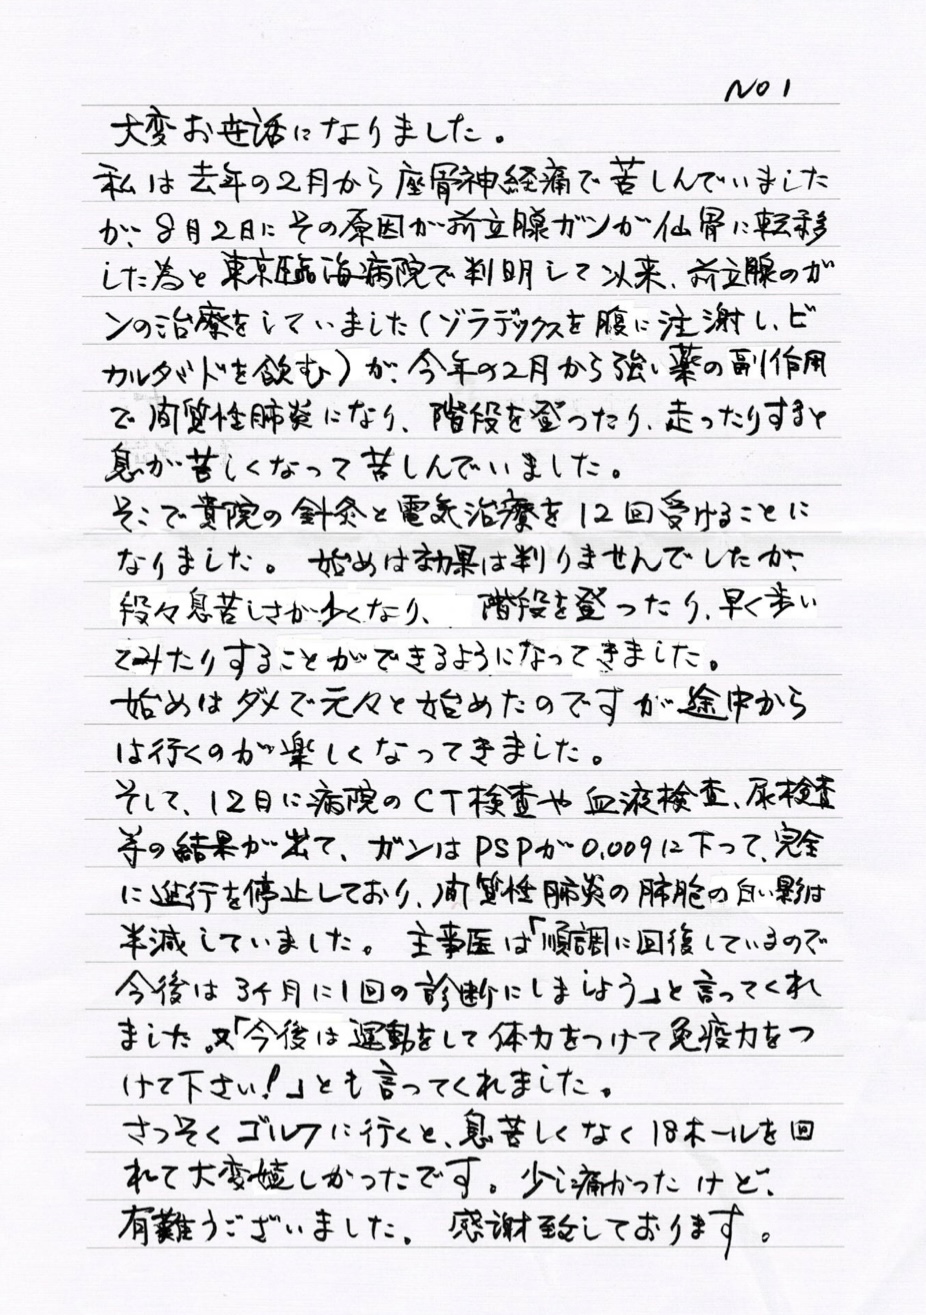 NO1
大変お世話になりました。
私は去年の2月から座骨神経痛で苦しんでいました
が、8月2日にその原因が前立腺ガンが仙骨に転移
した為と東京臨海病院で判明して以来、前立腺のガ
ンの治療をしていました(ゾラデックスを腹に注射し、ビ
カルタドドを飲む)が、今年の2月から強い薬の副作用
で間質性肺炎になり、階段を登ったり、走ったりすると
息が苦しくなって苦しんでいました。
そこで貴院の針灸と電気治療を12回受けることに
なりました。 始めは効果は判りませんでしたが、
段々息苦しさが少くなり、 階段を登ったり、早く歩い
てみたりすることができるようになってきました。
始めはダメで元々と始めたのですが途中から
は行くのが楽しくなってきました。
そして、12日に病院のCT検査や血液検査、尿検査
等の結果が出て、ガンはPSPが0.009に下って、完全
に進行を停止しており、間質性肺炎の肺胞の白い影は
半減していました。 主事医は「順調に回復しているので
今後は3ケ月に1回の診断にしましょう」と言ってくれ
ました。又「今後は運動をして体力をつけて免疫力をつ
けて下さい!」とも言ってくれました。
さっそくゴルフに行くと、息苦しくなく18ホールを回
れて大変嬉しかったです。少し痛かったけど、
有難うございました。 感謝致しております。